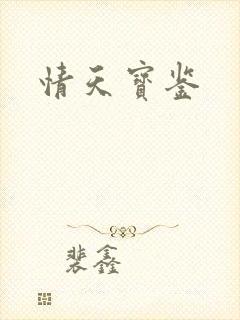 情天宝鉴
裴鑫